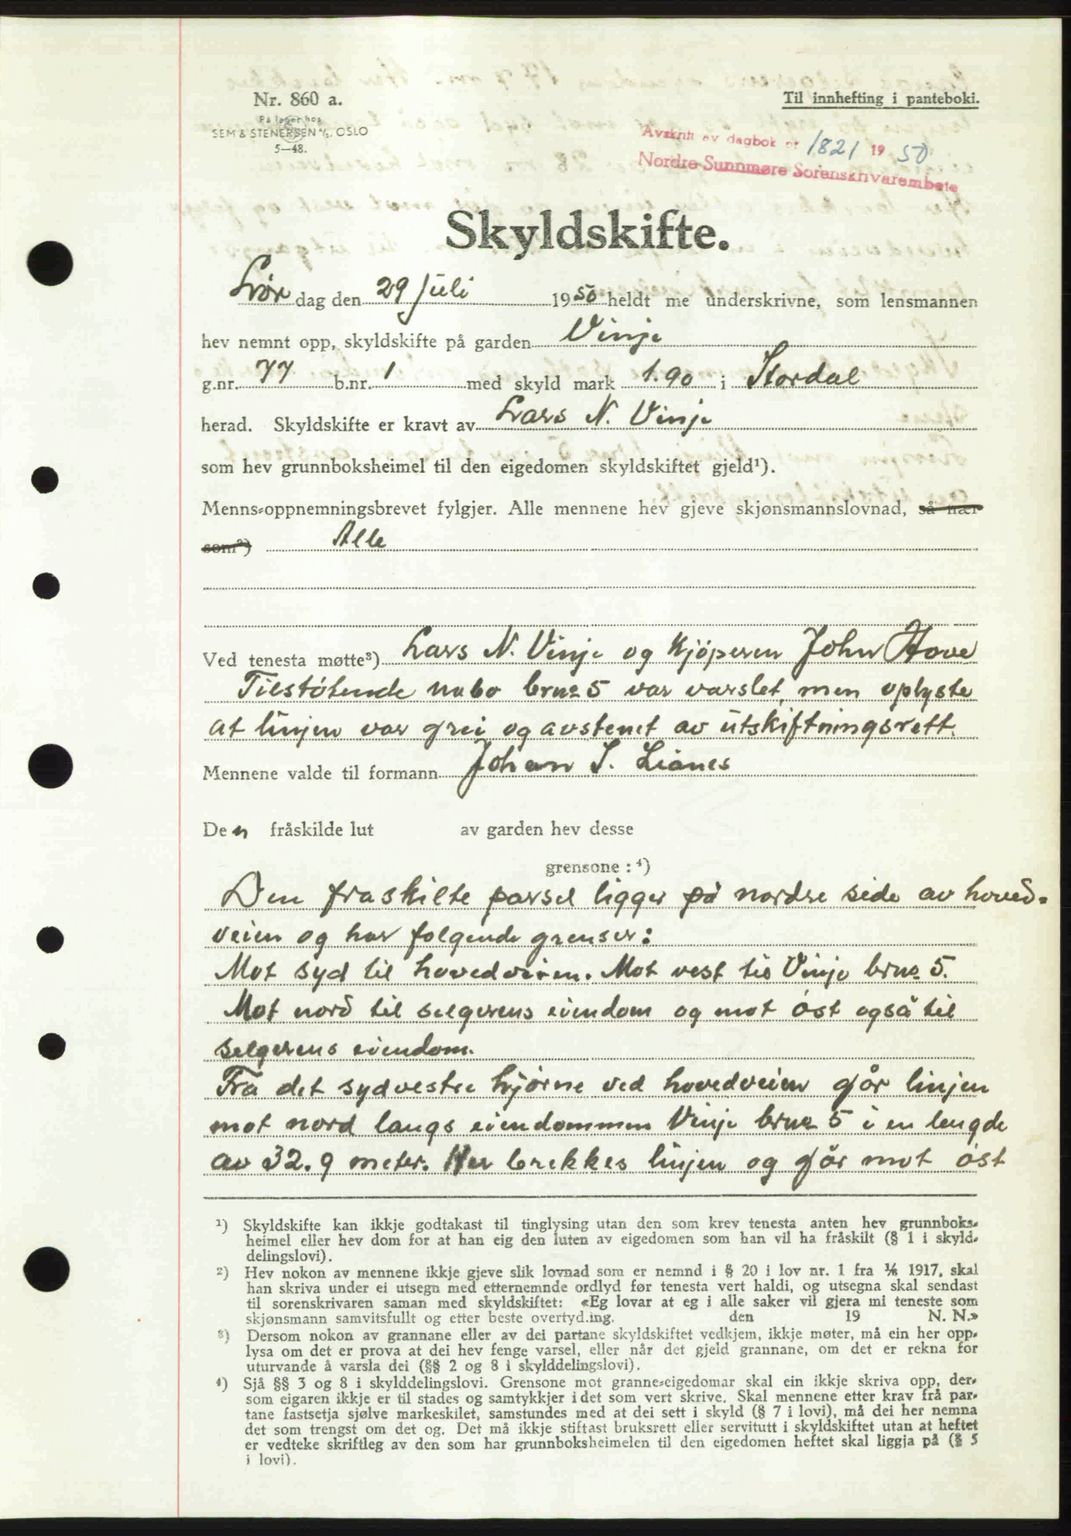 Nr. 860 a.
På lager hos
SEM & STENERSEN A/S, OSLO
5—48.
Til innhefting i panteboki.
Avskrift av dagbok nr 1821 1950
Nordre Sunnmøre Sorenskrivarembete
Skyldskifte.
Lør dag den 29 juli 1950 heldt me underskrivne, som lensmannen
hev nemnt opp, skyldskifte på garden Vinje
g.nr. 77 b.nr. 1 med skyld mark 1.90 i Stordal
herad. Skyldskifte er kravt av Lars N. Vinje
som hev grunnboksheimel til den eigedomen skyldskiftet gjeld¹).
Menns-oppnemningsbrevet fylgjer. Alle mennene hev gjeve skjønsmannslovnad, så nær
som²) Alle
Ved tenesta møtte³) Lars N. Vinje og kjöperen John Hove
Tilstötende nabo brn 5 var varslet, men oplyste
at linjen var grei og avstenet av utskiftningsrett.
Mennene valde til formann Johan S. Lianes
Den fråskilde lut av garden hev desse
grensone : ⁴)
Den fraskilte parsel ligger på nordre side av hoved-
veien og har folgende grenser:
Mot syd til hovedveien. Mot vest til Vinje brn 5.
Mot nord til selgerens eiendom og mot öst også til
selgerens eiendom.
Fra det sydvestre hjörne ved hovedveien går linjen
mot nord langs eiendommen Vinje brn 5 i en lengde
av 32.9 meter. Her brekkes linjen og går mot öst
¹) Skyldskifte kan ikkje godtakast til tinglysing utan den som krev tenesta anten hev grunnboks-
heimel eller hev dom for at han eig den luten av eigedomen som han vil ha fråskilt (§ 1 i skyld-
delingslovi).
²) Hev nokon av mennene ikkje gjeve slik lovnad som er nemnd i § 20 i lov nr. 1 fra ⅙ 1917, skal
han skriva under ei utsegn med etternemnde ordlyd før tenesta vert haldi, og utsegna skal sendast
til sorenskrivaren saman med skyldskiftet: «Eg lovar at eg i alle saker vil gjera mi teneste som
skjønsmann samvitsfullt og etter beste overtyding. den 19 N. N.»
³) Dersom nokon av grannane eller av dei partane skyldskiftet vedkjem, ikkje møter, må ein her opp-
lysa om det er prova at dei hev fenge varsel, eller når det gjeld grannane, om det er rekna for
uturvande å varsla dei (§§ 2 og 8 i skylddelingslovi).
⁴) Sjå §§ 3 og 8 i skylddelingslovi. Grensone mot granne-eigedomar skal ein ikkje skriva opp, der-
som eigaren ikkje er til stades og samtykkjer i det som vert skrive. Skal mennene etter krav frå par-
tane fastsetja sjølve markeskilet, samstundes med at dei sett i skyld (§ 7 i lovi), må dei her nemna
det som trengst om det og. Det må ikkje stiftast bruksrett eller servitutt i skyldskiftet utan at heftet
er vedteke skriftleg av den som har grunnboksheimelen til den eigedomen heftet skal liggja på (§ 5
i lovi).